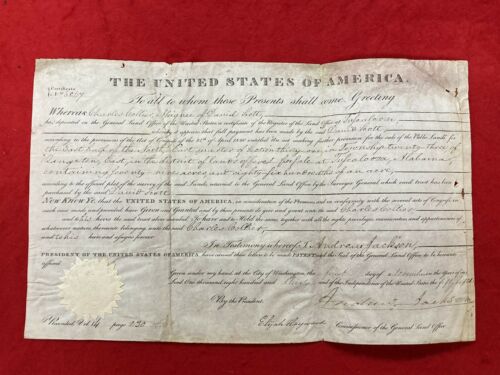 Certificate
THE UNITED STATES OF AMERICA.
To all to whom these Presents shall come, Greeting
Whereas Charles Collier, Assignee of David Scott,
has deposited in the General Land Office of the United States, a certificate of the Register of the Land Office at Tuscaloosa,
whereby it appears that full payment has been made by the said David Scott
according to the provisions of the Act of Congress of the 24th of April 1820 entitled An act making further provision for the sale of the Public Lands for
the East half of the North of Section thirty one in Township twenty three of
Range ten East, in the district of Lands offered for sale at Tuscaloosa, Alabama,
containing seventy nine acres and eighty five hundredths of an acre,
according to the official plat of the survey of the said Lands, returned to the General Land Office by the Surveyor General, which said tract has been
purchased by the said David Scott
NOW KNOW YE, that the UNITED STATES OF AMERICA, in consideration of the Premises, and in conformity with the several acts of Congress in
such case made and provided have Given and Granted and by these presents do give and grant unto the said Charles Collier
and to his heirs the said tract above described To have and to Hold the same, together with all the rights, privileges, immunities, and appurtenances of
whatsoever nature, thereunto belonging unto the said Charles Collier,
and to his heirs and assigns forever
In Testimony whereof I, Andrew Jackson,
PRESIDENT OF THE UNITED STATES OF AMERICA, have caused these letters to be made PATENT and the Seal of the General Land Office to be hereunto
affixed.
Given under my hand at the City of Washington, the first day of November in the Year of our
Lord One thousand eight hundred and thirty and of the Independence of the United States the fifty fifth
By the President. Andrew Jackson
Recorded Vol 14 page 232 Elijah Hayward Commissioner of the General Land Office